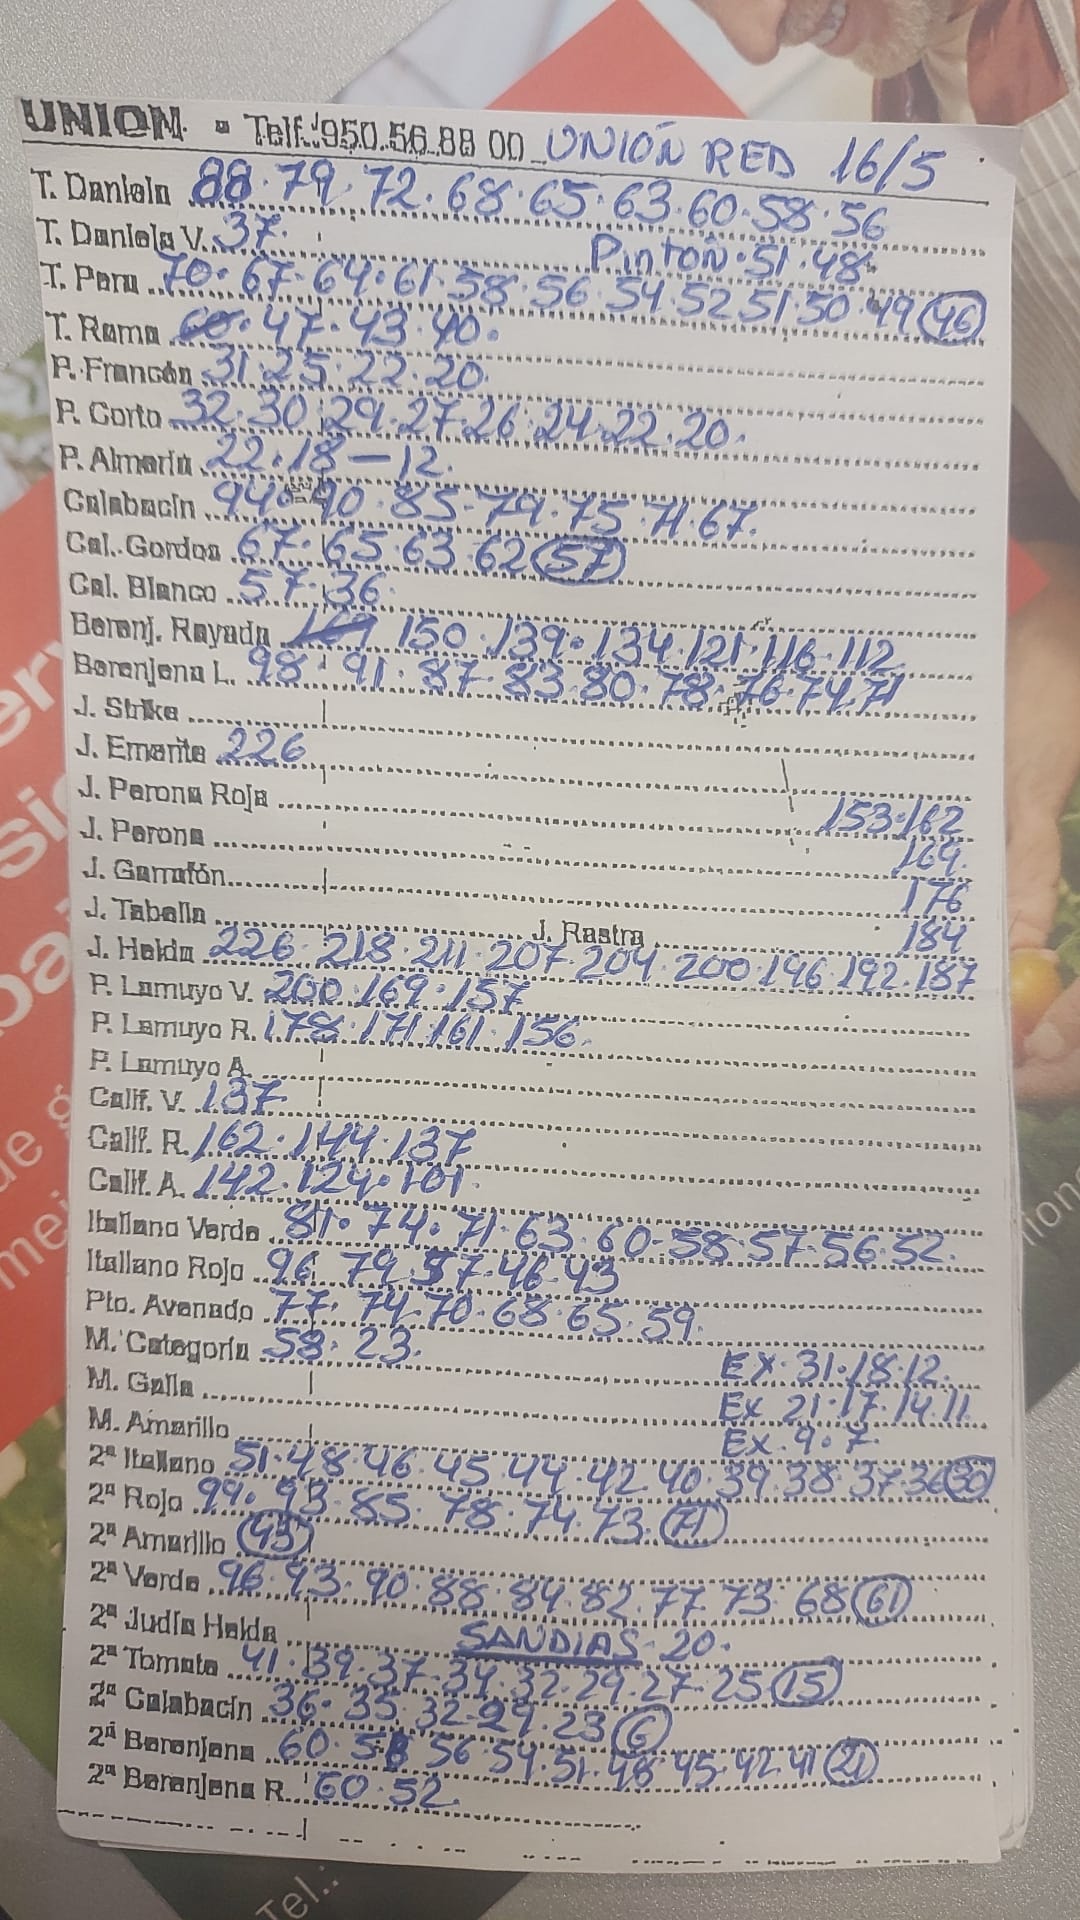 UNION - Telf. 950.56.88 00 UNIÓN RED 16/5
T. Daniela 88.79.72.68.65.63.60.58.56
T. Daniela V. 37. Pintoñ.51.48
T. Pera 70.67.64.61.58.56 54 52 51 50.49 (46)
T. Rama 47.43.40.
P. Francés 31.25.22.20.
P. Corto 32.30.29.27.26.24.22.20.
P. Almería 22.18-12.
Calabacín 94.90.85-79.75.71.67.
Cal. Gordos 67.65.63.62 (57)
Cal. Blanco 57.36.
Berenj. Rayada 169 150.139.134.121.116.112.
Berenjena L. 98.91.87.83.80.78.76.74.71
J. Strike
J. Emerite 226
J. Perona Roja 153.162
J. Perona 169.
J. Garrafón 176
J. Tabella J. Rastra 184
J. Helda 226.218.211.207.204.200.196.192.187
P. Lamuyo V. 200.169.157
P. Lamuyo R. 178.171.161.156.
P. Lamuyo A.
Calif. V. 137
Calif. R. 162.144.137
Calif. A. 142.124.101.
Italiano Verde 81.74.71.63.60-58.57.56.52.
Italiano Rojo 96 79.57.46.43
Pto. Avenado 77.74.70.68.65.59.
M. Categoría 58.23. Ex.31.18.12.
M. Galia Ex 21.17.14.11.
M. Amarillo Ex.9.7.
2ª Italiano 51.48.46.45.44.42.40.39.38.37.36 (30)
2ª Rojo 99.93.85.78.74.73. (71)
2ª Amarillo (93)
2ª Verde 96.93.90.88.84.82.77.73.68 (61)
2ª Judía Helda SANDIAS-20.
2ª Tomate 41.39.37.34.32.29.27.25 (15)
2ª Calabacín 36.35.32.29.23 (6)
2ª Berenjena 60.58 56.54.51.48 45.42.41 (21)
2ª Berenjena R. 60.52.
Tel.: